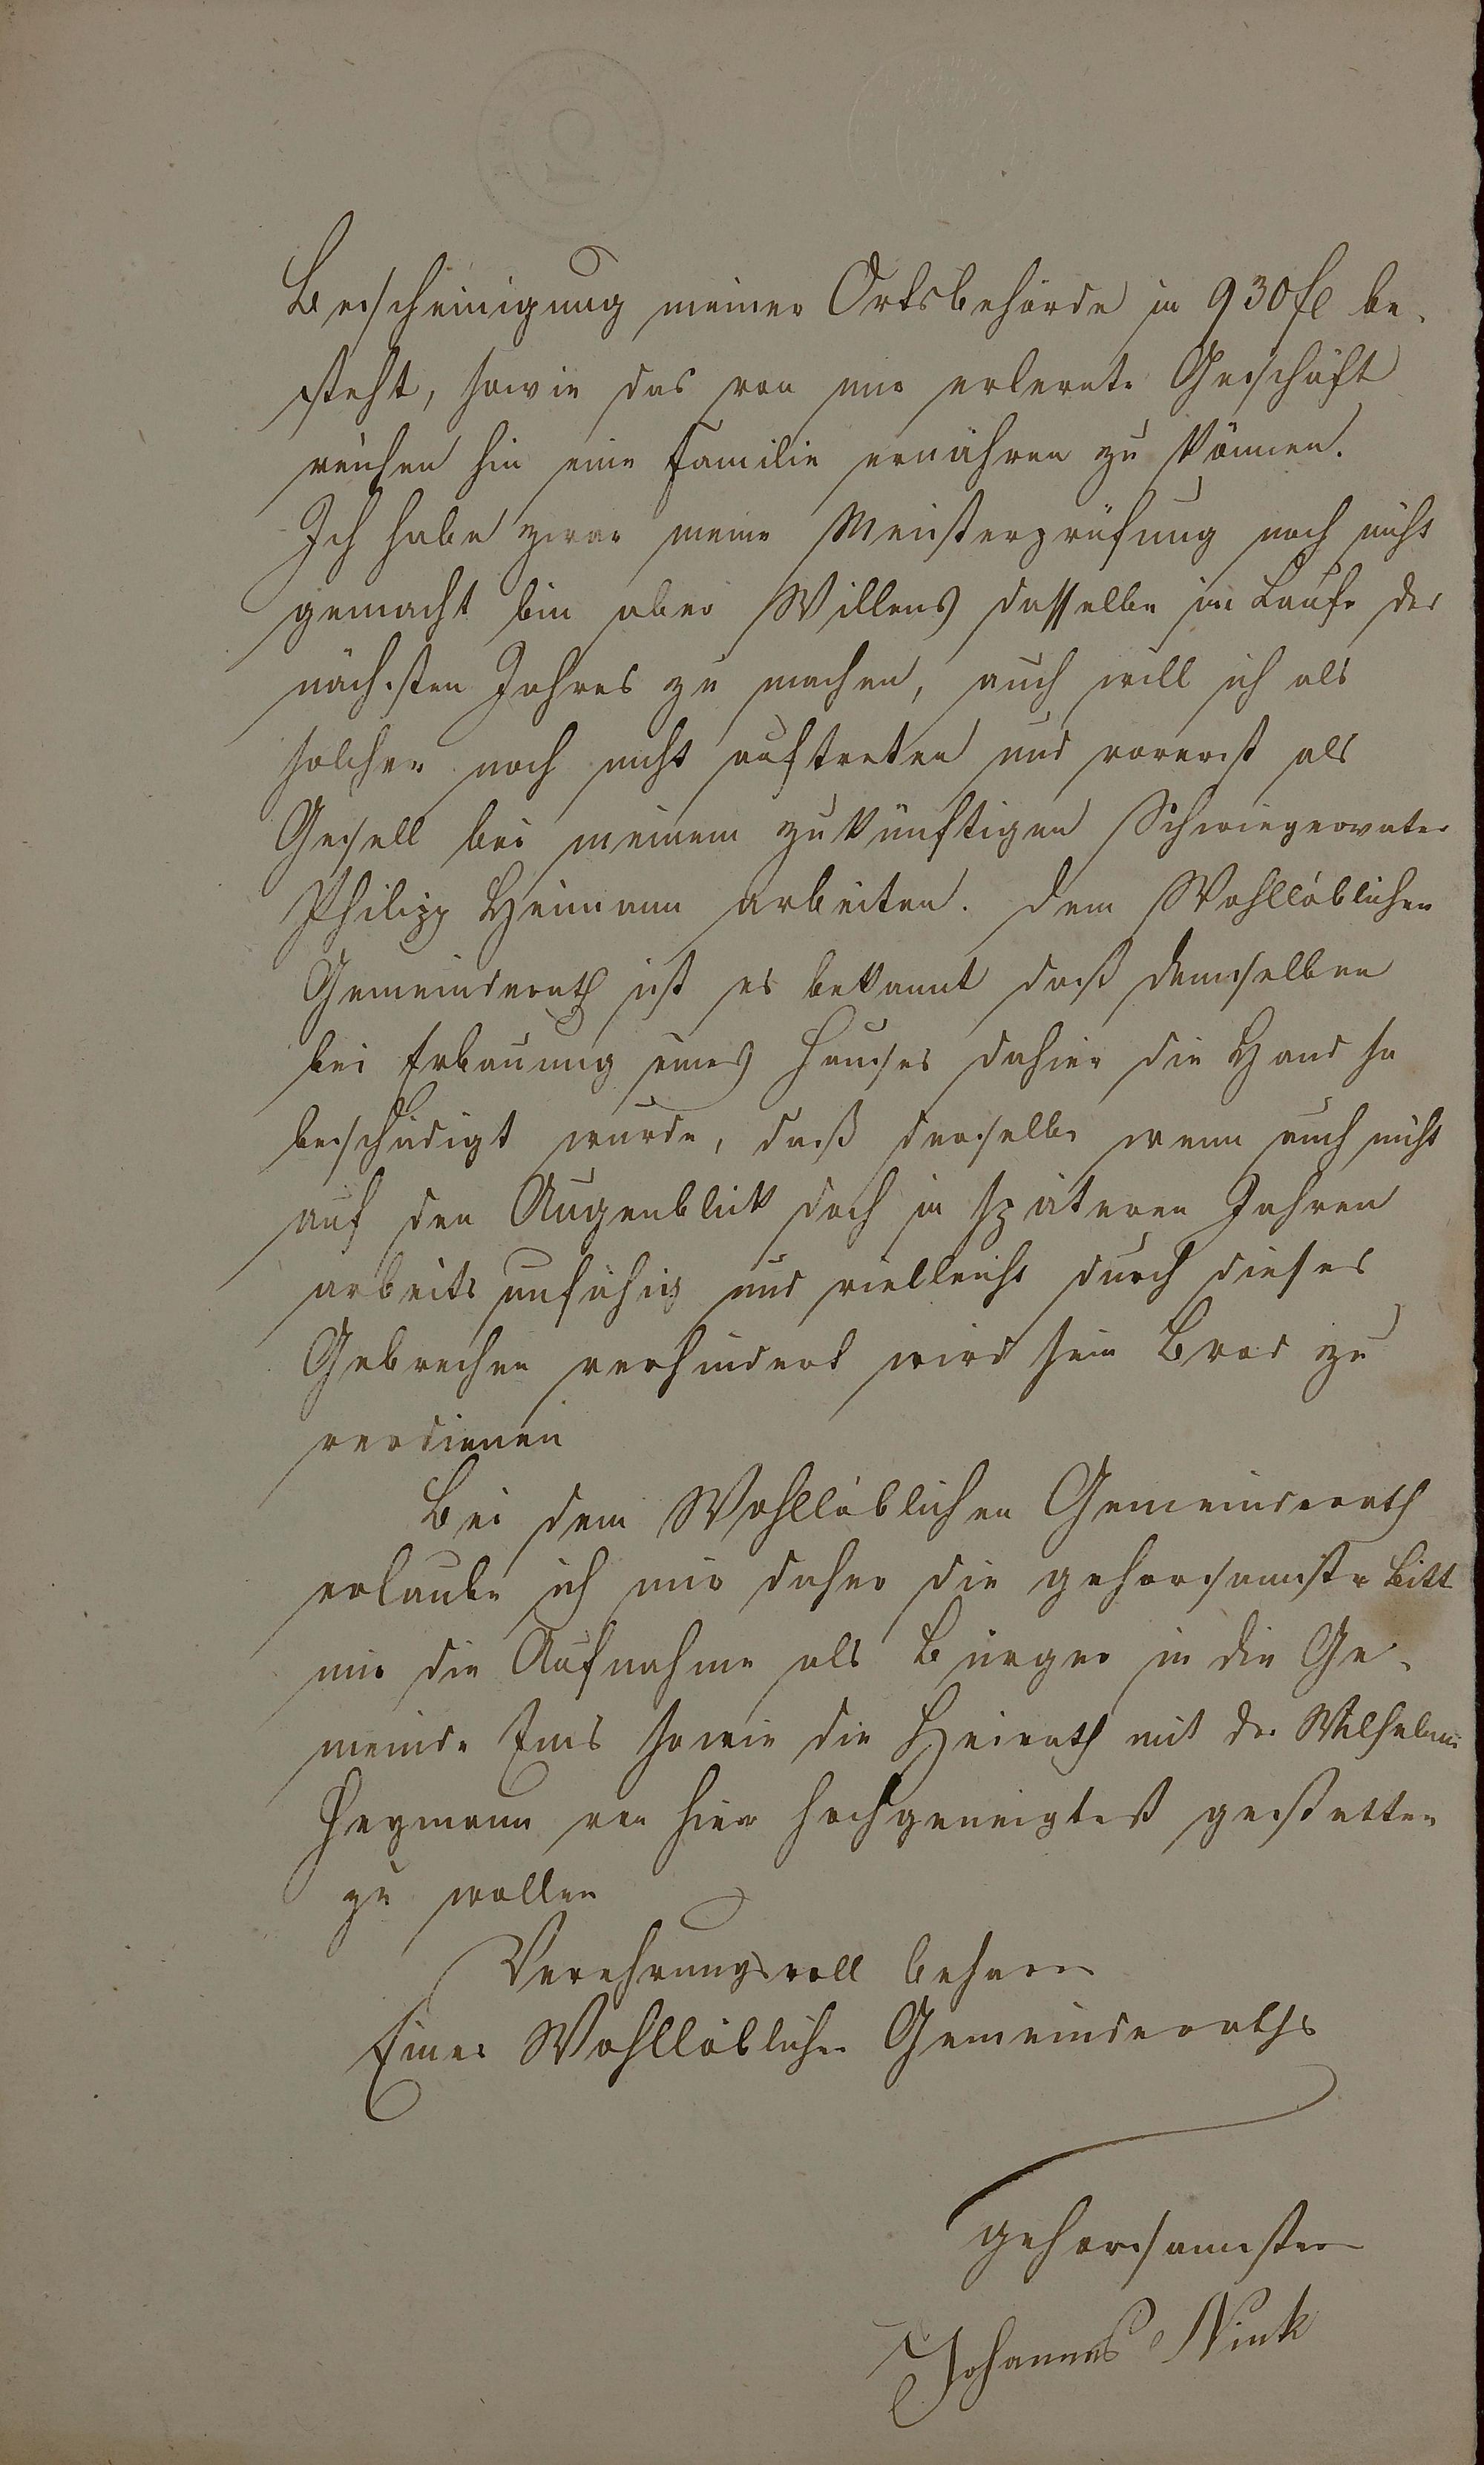 Bescheinigung meiner Ortsbehörde in 930 fl be-
steht, sowie das von mir erlernte Geschäft
reichen hin eine Familie ernähren zu können.
Ich habe zwar meine Meisterprüfung noch nicht
gemacht bin aber Willens dasselbe im Laufe des
nächsten Jahres zu machen, auch will ich als
solcher noch nicht auftreten und vorerst als
Gesell bei meinem zukünftigen Schwiegervater
Philipp Heimann arbeiten. Dem Wohllöblichen
Gemeinderath ist es bekannt daß demselben
bei Erbauung eines Hauses dahier die Hand so
beschädigt wurde, daß derselbe wenn auch nicht
auf den Augenblick doch in späteren Jahren
arbeitsunfähig und vielleicht durch dieses
Gebrechen verhindert wird sein Brod zu
verdienen
Bei dem Wohllöblichen Gemeinderath
erlaube ich mir daher die gehorsamste Bitt
mir die Aufnahme als Bürger in die Ge-
meinde Ems sowie die Heirath mit der Wilhelmine
Heymann von hier hochgeneigtest gestatten
zu wollen
Verehrungsvoll beharre
Eines Wohllöblichen Gemeinderaths
gehorsamster
Johannes Nink